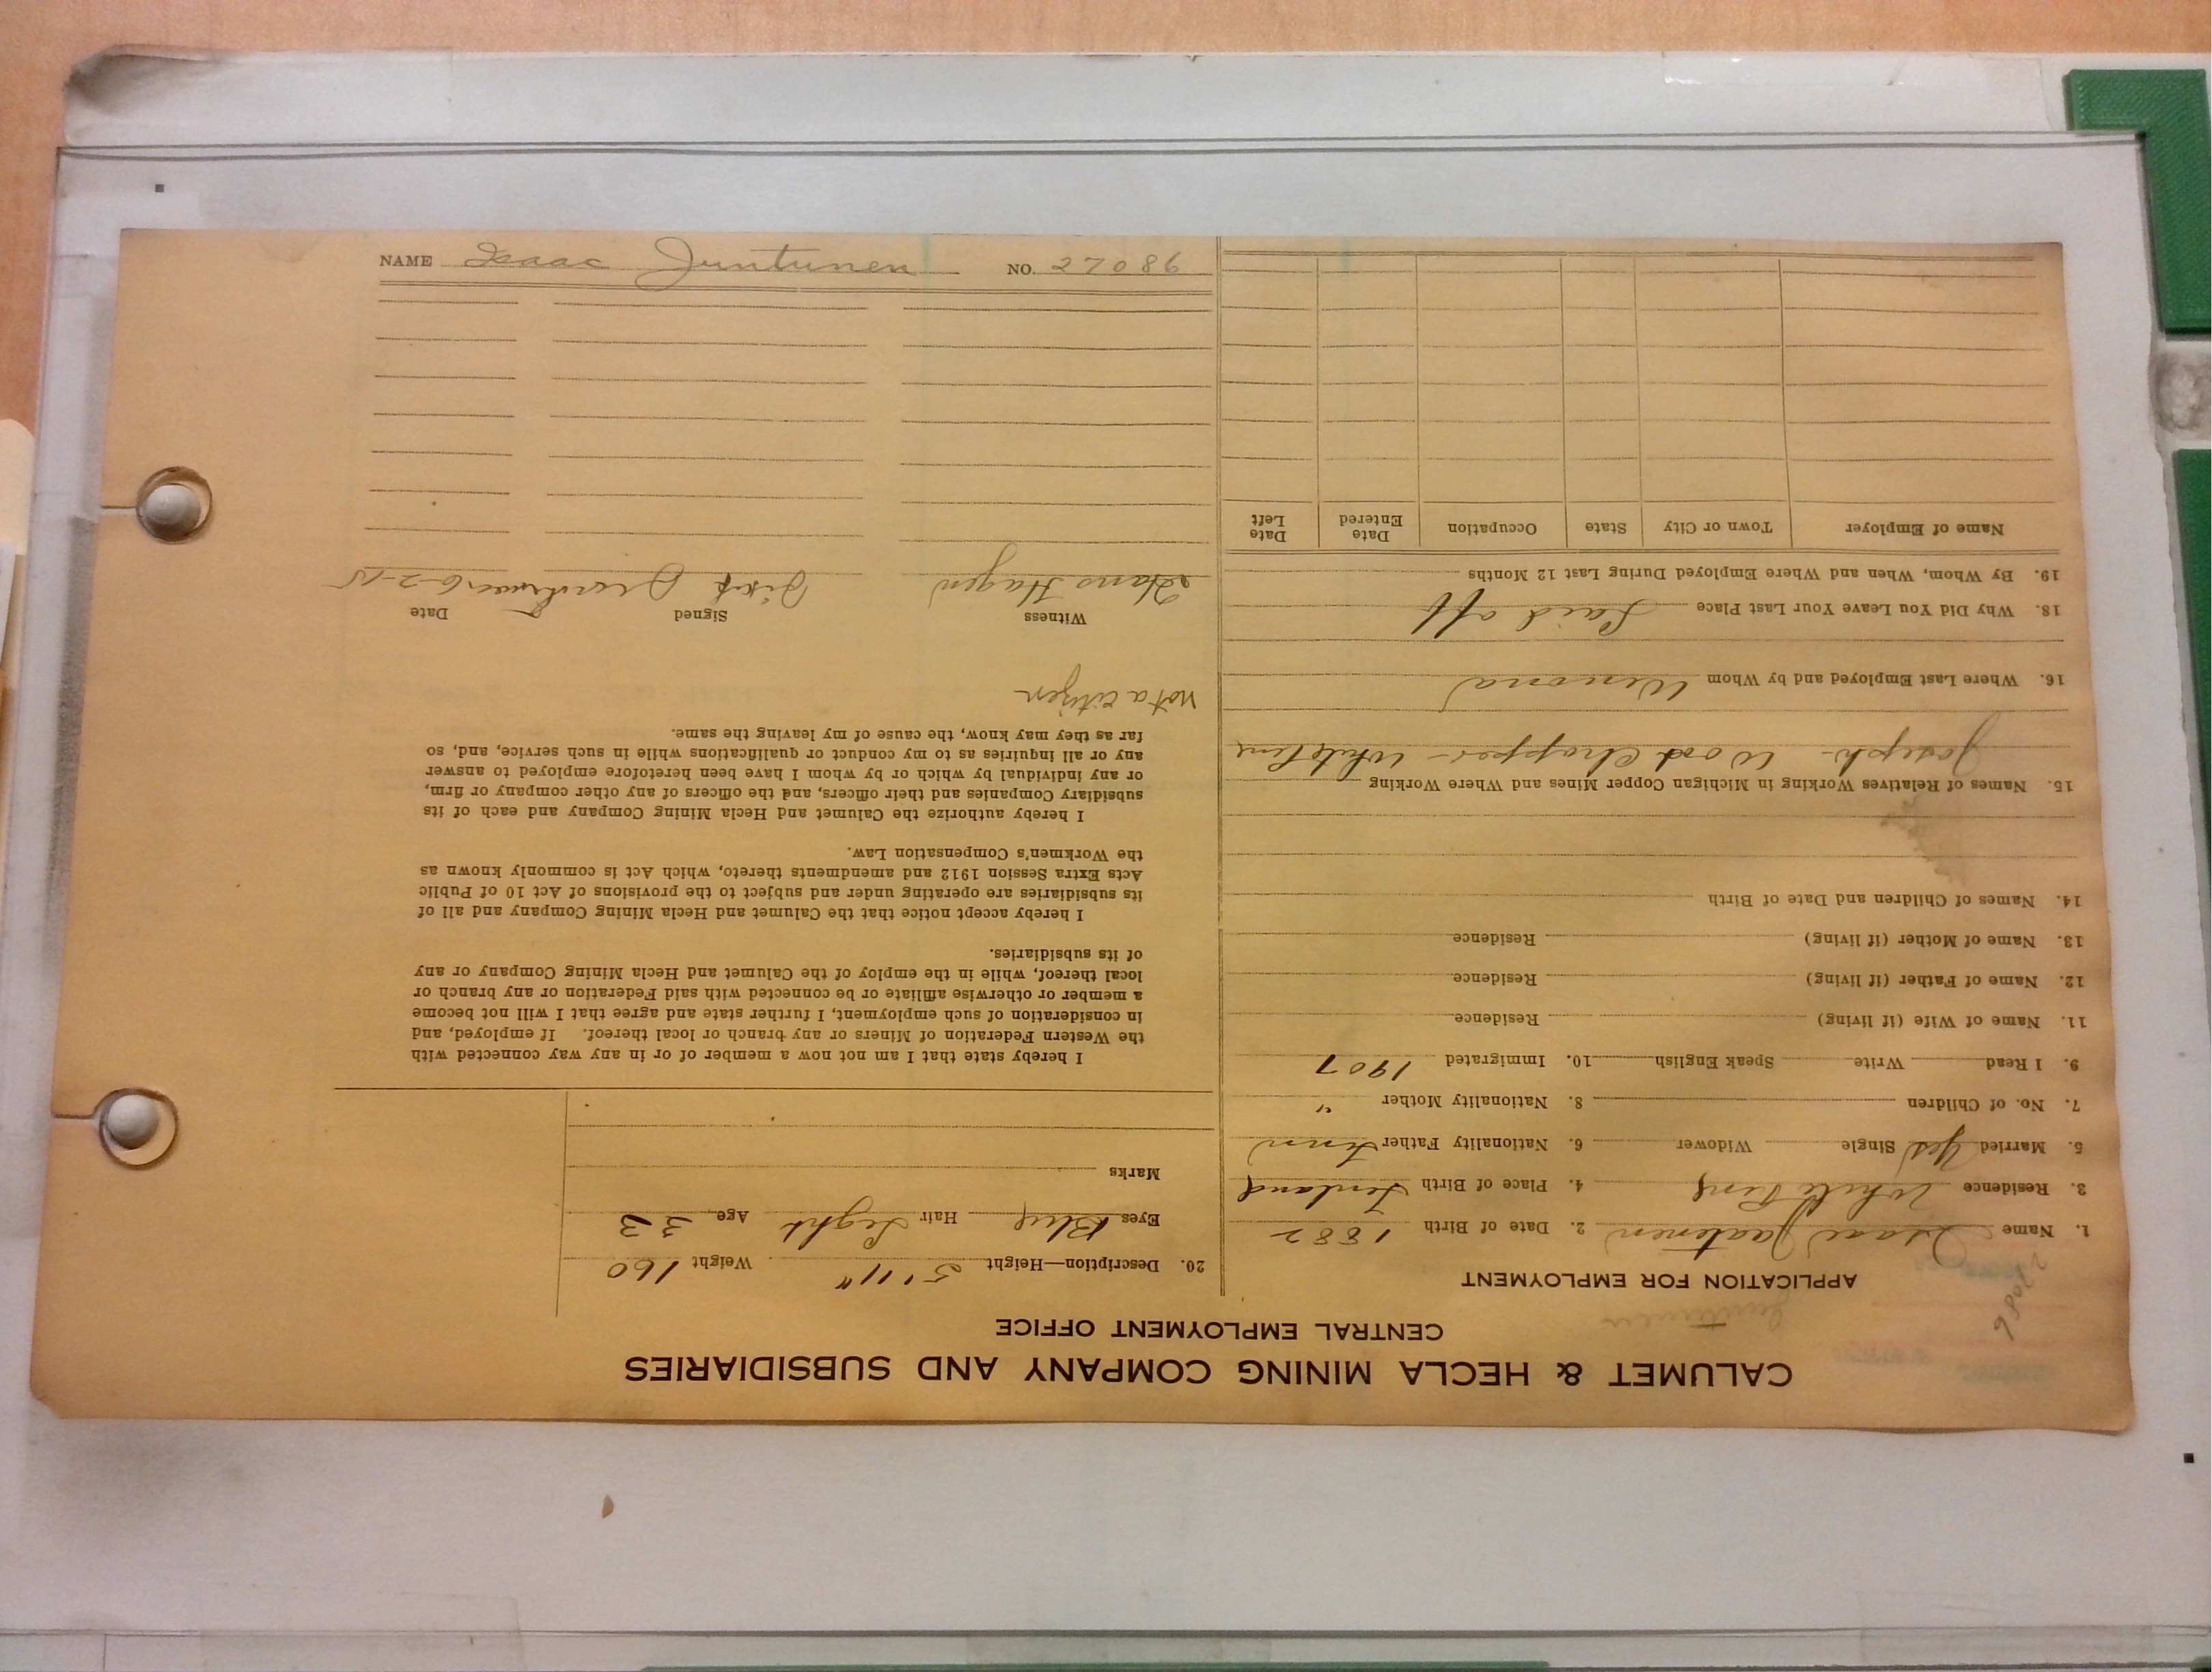 CALUMET & HECLA MINING COMPANY AND SUBSIDIARIES
CENTRAL EMPLOYMENT OFFICE
27086
Juntunen
APPLICATION FOR EMPLOYMENT
1. Name Isaac 2. Date of Birth 1882
3. Residence White Pine 4. Place of Birth Finland
5. Married Yes Single Widower 6. Nationality Father Finn
7. No. of Children 8. Nationality Mother "
9. I Read Write Speak English 10. Immigrated 1907
11. Name of Wife (if living) Residence
12. Name of Father (if living) Residence
13. Name of Mother (if living) Residence
14. Names of Children and Date of Birth
15. Names of Relatives Working in Michigan Copper Mines and Where Working
Joseph - Wood Chopper - White Pine
16. Where Last Employed and by Whom Winona
18. Why Did You Leave Your Last Place Laid off
19. By Whom, When and Where Employed During Last 12 Months
Name of Employer Town or City State Occupation Date Entered Date Left
20. Description—Height 5' 11" Weight 160
Eyes Blue Hair Light Age 33
Marks
I hereby state that I am not now a member of or in any way connected with
the Western Federation of Miners or any branch or local thereof. If employed, and
in consideration of such employment, I further state and agree that I will not become
a member or otherwise affiliate or be connected with said Federation or any branch or
local thereof, while in the employ of the Calumet and Hecla Mining Company or any
of its subsidiaries.
I hereby accept notice that the Calumet and Hecla Mining Company and all of
its subsidiaries are operating under and subject to the provisions of Act 10 of Public
Acts Extra Session 1912 and amendments thereto, which Act is commonly known as
the Workmen's Compensation Law.
I hereby authorize the Calumet and Hecla Mining Company and each of its
subsidiary Companies and their officers, and the officers of any other company or firm,
or any individual by which or by whom I have been heretofore employed to answer
any or all inquiries as to my conduct or qualifications while in such service, and, so
far as they may know, the cause of my leaving the same.
not a citizen
Witness Signed Date
Hans Hagen 6-2-15
NAME Isaac Juntunen NO. 27086